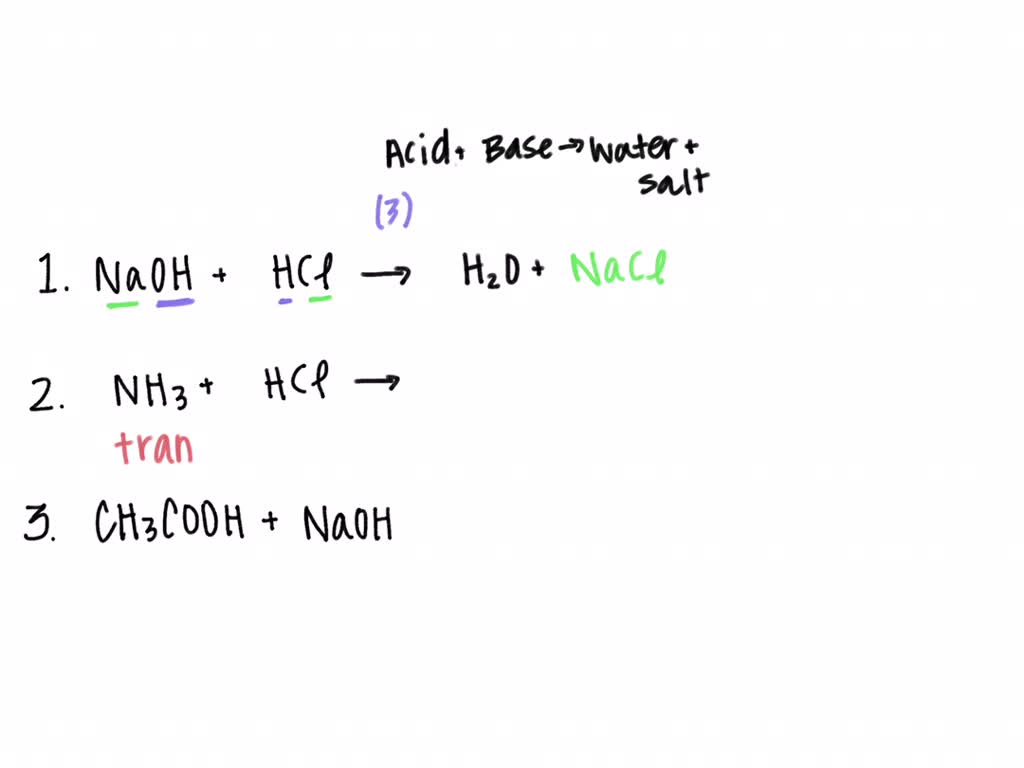 Acid + Base → water +
salt
(3)
1. NaOH + HCl → H₂O + NaCl
2. NH₃ + HCl →
tran
3. CH₃COOH + NaOH